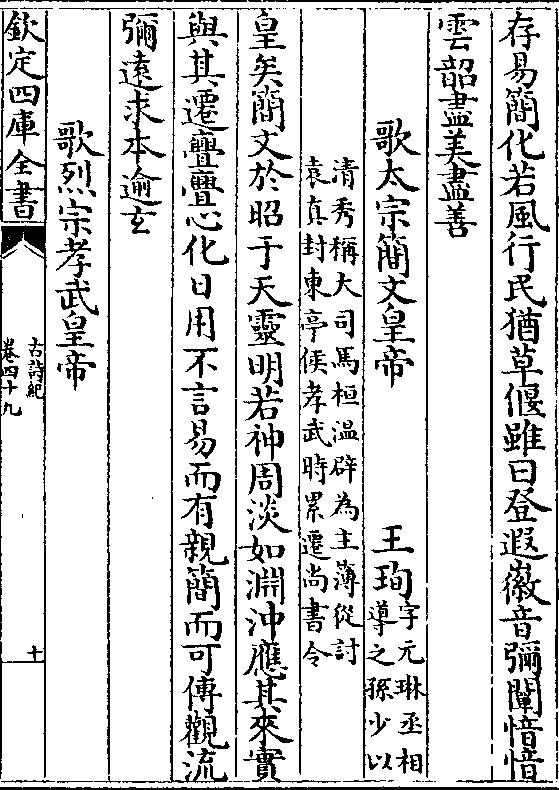 存易簡化若風行民猶草偃雖曰登遐徽音彌闡愔愔
雲韶盡美盡善
歌太宗簡文皇帝 王珣字元琳丞相導之孫少以
清秀稱大司馬桓溫辟為主薄從討
袁真封東亭侯孝武時累遷尚書令
皇矣簡文於昭于天靈明若神周淡如淵沖應其來實
與其遷亹亹心化日用不言易而有親簡而可傳觀流
彌遠求本逾玄
歌烈宗孝武皇帝
欽定四庫全書
古詩紀
卷四十九
十